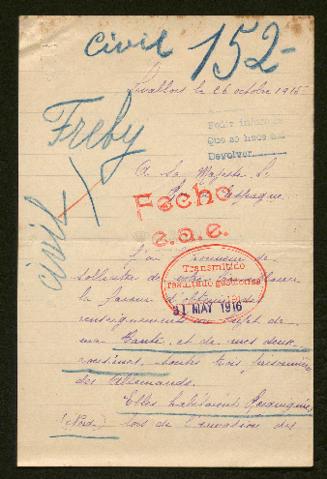 civil 152-
Levallois le 26 octobre 1915
Pedir informes
que se hace
Devolver
Freby
civil
A Sa Majesté le
Roi d'Espagne
Fecho
e.a.e.
J'ai l'honneur de
solliciter de votre
la faveur d'obtenir des
renseignements au sujet de
Transmitido
resultado gestiones
31 MAY 1916
ma tante, et de mes deux
cousines, toutes trois prisonnières
des Allemands.
Elles habitaient
(Nord) lors de l'invasion des